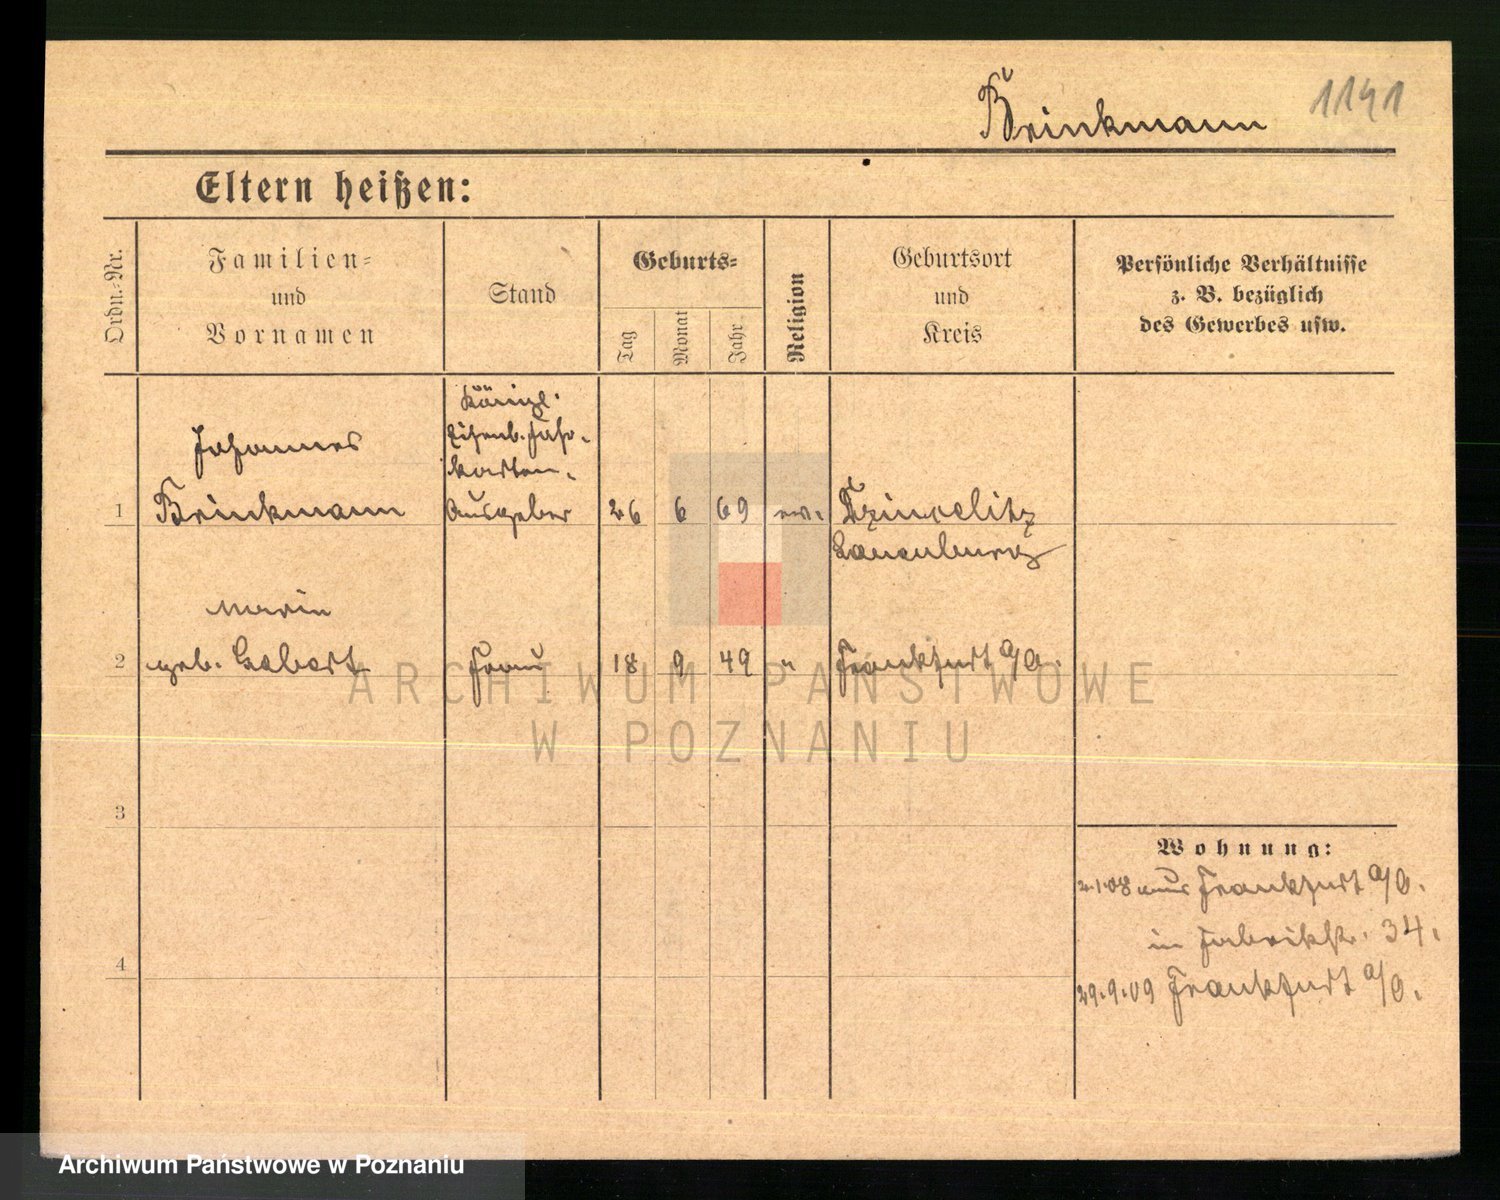 Brinkmann 1141
Eltern heißen:
Ordn.-Nr.
Familien-
und
Vornamen
Stand
Geburts-
Tag
Monat
Jahr
Religion
Geburtsort
und
Kreis
Persönliche Verhältnisse
z. B. bezüglich
des Gewerbes usw.
Johannes
1 Brinkmann
Königl.
Eisenb. Fahr-
karten-
Ausgeber
26 6 69 ev.
Lauenburg
Marie
2 geb. Frau 18 9 49 " Frankfurt a/O.
3
4
Wohnung:
2.1.08 aus Frankfurt a/O.
in Fabrikstr. 34.
29.9.09 Frankfurt a/O.
ARCHIWUM PAŃSTWOWE
W POZNANIU
Archiwum Państwowe w Poznaniu